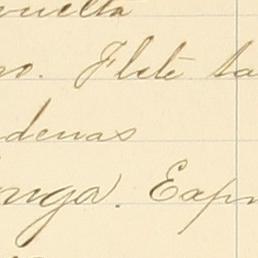 vuelta
o. Flete ta
denas
nga. Expr